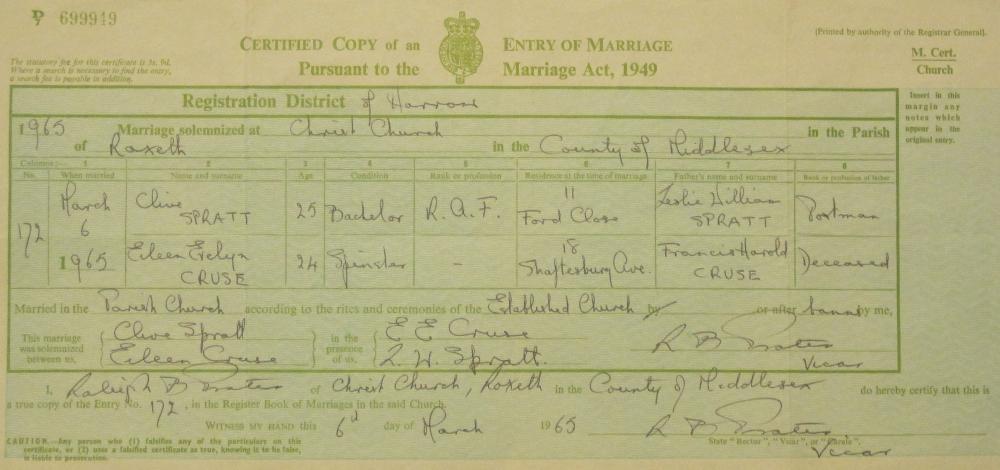 699949
CERTIFIED COPY of an ENTRY OF MARRIAGE
Pursuant to the Marriage Act, 1949
(Printed by authority of the Registrar General).
M. Cert.
Church
The statutory fee for this certificate is 3s. 9d.
Where a search is necessary to find the entry,
a search fee is payable in addition.
Insert in this
margin any
notes which
appear in the
original entry.
Registration District of Harrow
1965 Marriage solemnized at Christ Church in the Parish
of Roxeth in the County of Middlesex
Columns :— 1 2 3 4 5 6 7 8
No. When married Name and surname Age Condition Rank or profession Residence at the time of marriage Father's name and surname Rank or profession of father
172 March 6 1965
Clive SPRATT 25 Bachelor R.A.F. 11 Ford Close Leslie William SPRATT Postman
Eileen Evelyn CRUSE 24 Spinster – 18 Shaftesbury Ave. Francis Harold CRUSE Deceased
Married in the Parish Church according to the rites and ceremonies of the Established Church by or after banns by me,
This marriage was solemnized between us, Clive Spratt Eileen Cruse in the presence of us, E E Cruse L. W. Spratt. R B Vicar
I, Raleigh B of Christ Church, Roxeth in the County of Middlesex do hereby certify that this is
a true copy of the Entry No. 172, in the Register Book of Marriages in the said Church.
WITNESS MY HAND this 6th day of March 1965 R B
State "Rector", "Vicar", or "Curate".
Vicar
CAUTION.—Any person who (1) falsifies any of the particulars on this
certificate, or (2) uses a falsified certificate as true, knowing it to be false,
is liable to prosecution.